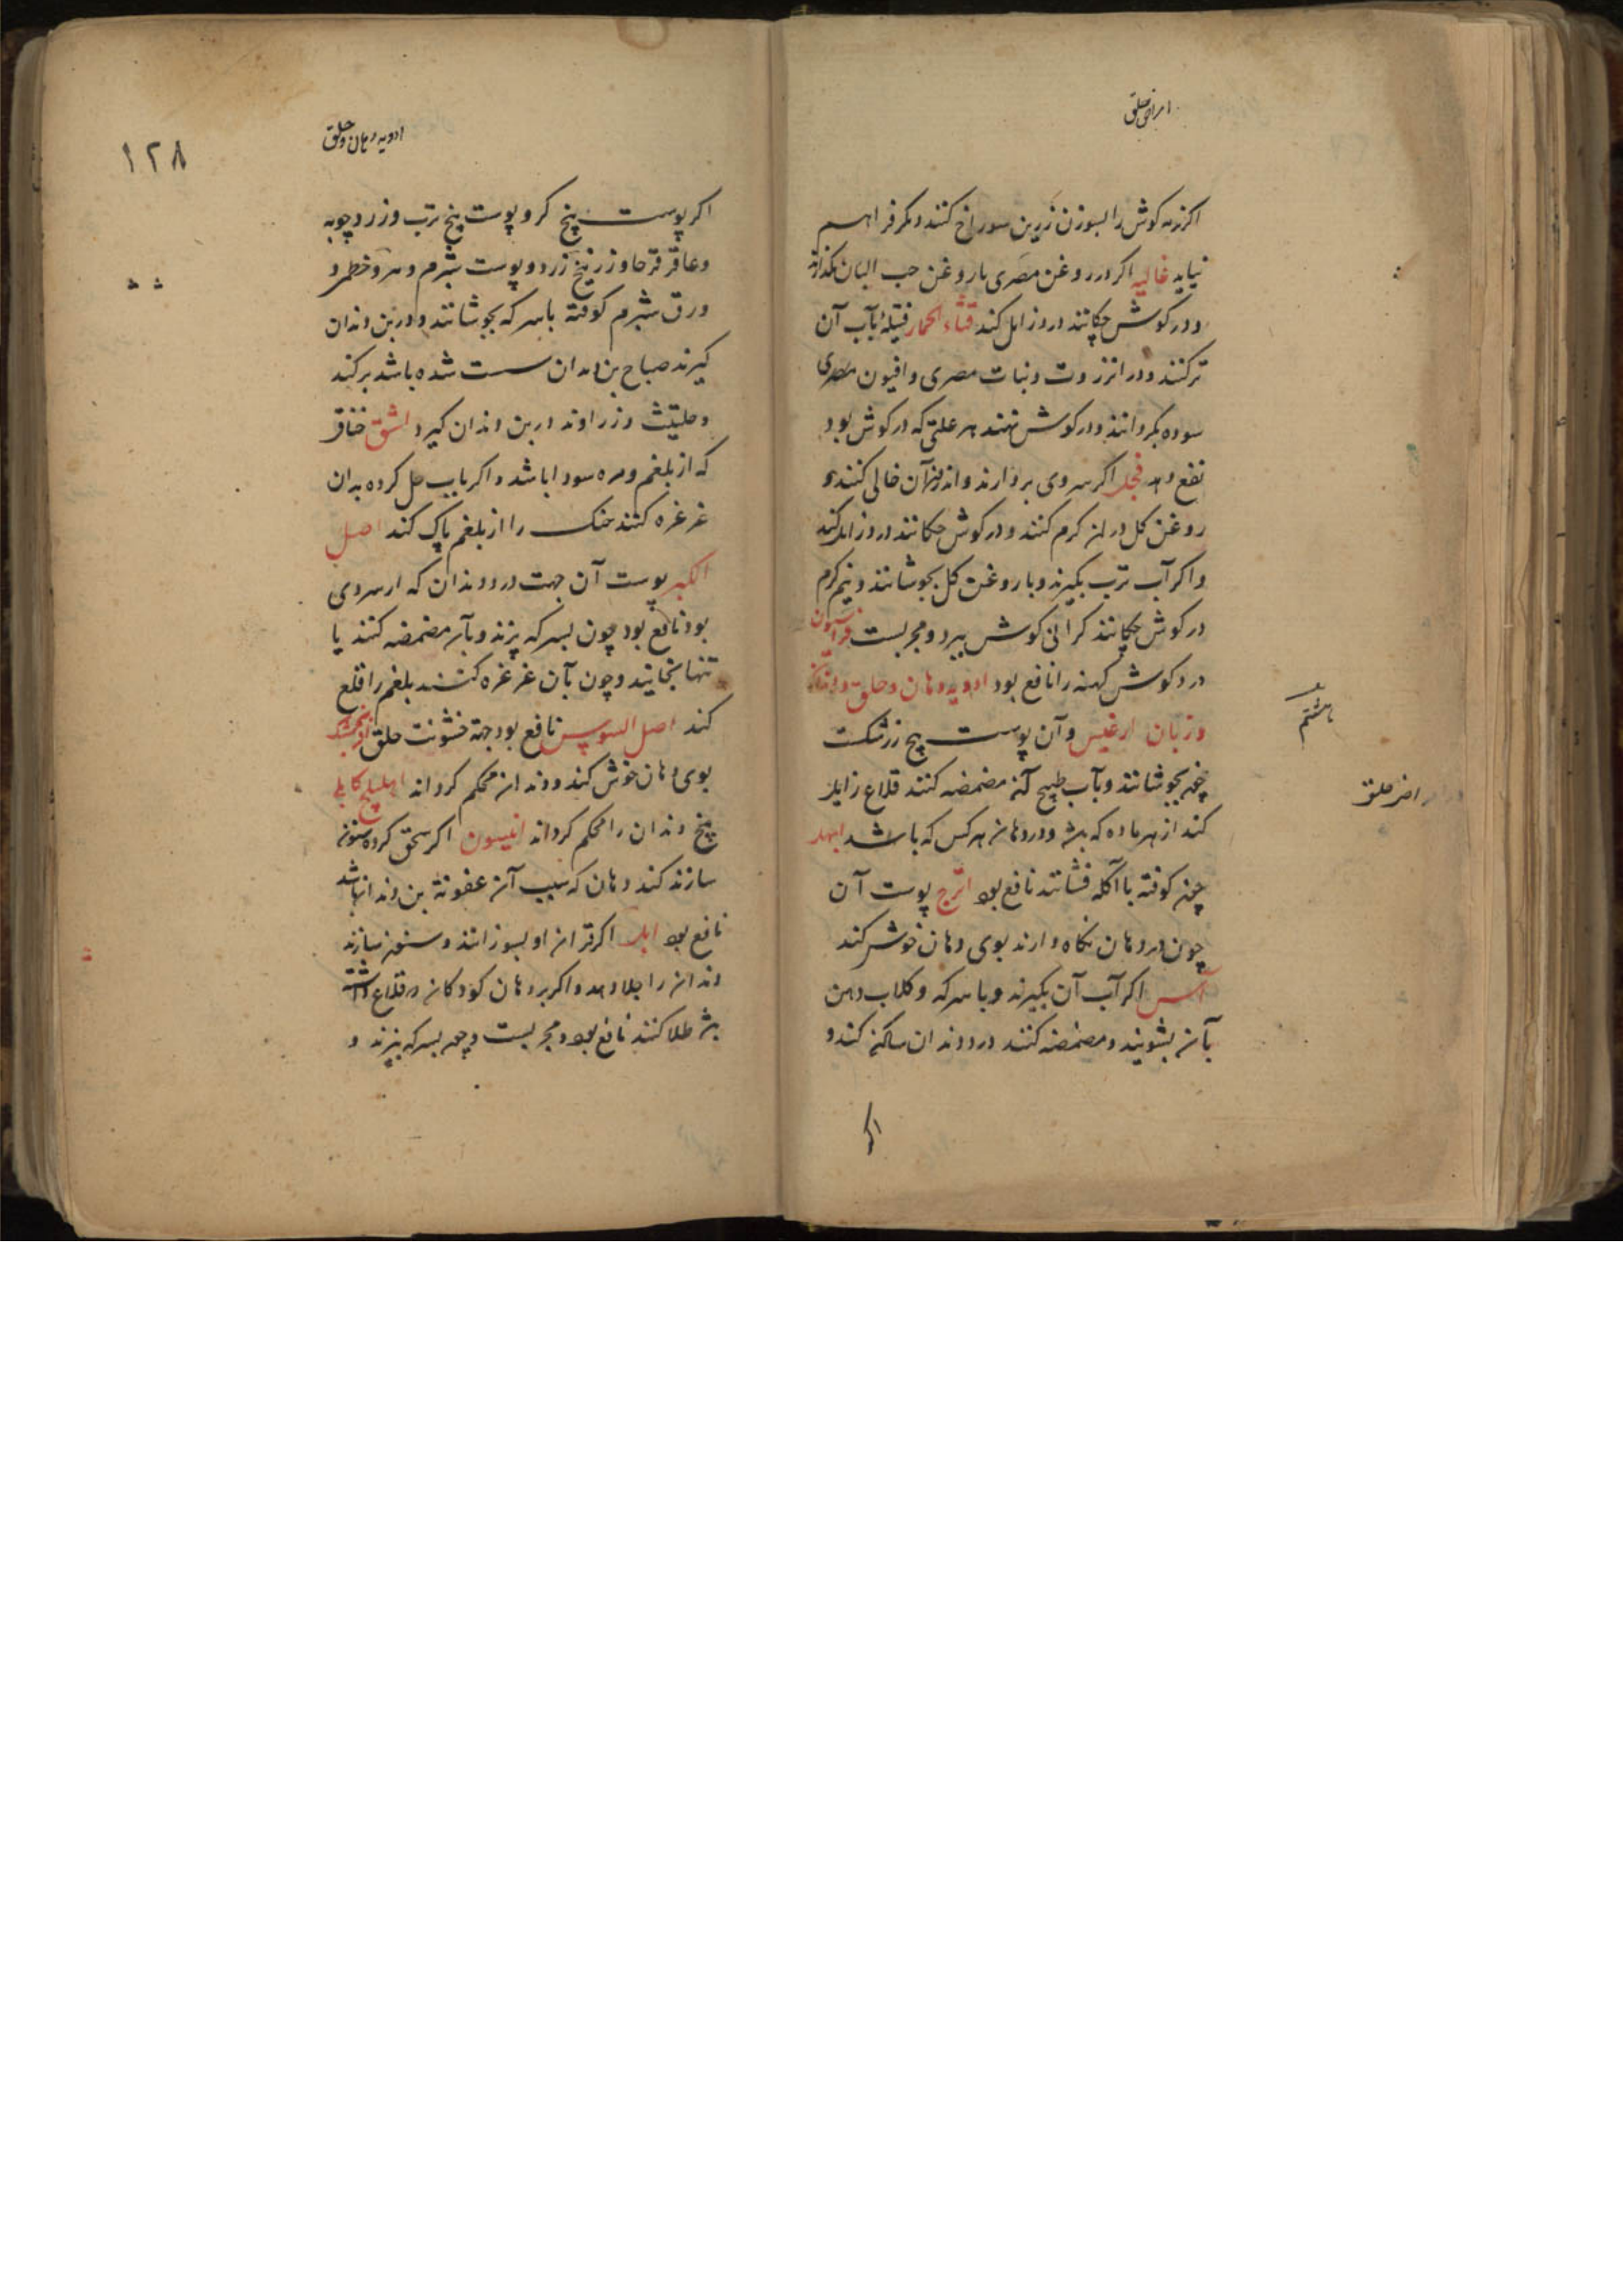 امراض حلق
اکر نرمه کوش را بسوزن زرین سوراخ کنند دیکر فراهم
نیاید غالیه اکر در روغن مصری یا روغن حب البان بکدازند
و در کوش چکانند درد زایل کند قثاء الحمار فتیله بآب آن
تر کنند و در انزروت و نبات مصری و افیون مصری
سوده بکردانند و در کوش نهند هر علتی که در کوش بود
نفع دهد فجل اکر سروی بردارند و اندرون آن خالی کنند و
روغن کل در ان کرم کنند و در کوش چکانند درد زایل کند
و اکر آب ترب بکیرند و با روغن کل بجوشانند و نیم کرم
در کوش چکانند کرانی کوش ببرد و مجربست فراسیون
درد کوش کهنه را نافع بود ادویه دهان و حلق و دندان
و زبان ارغیس و آن پوست بیخ زرشکست
چون بجوشانند و بآب طبیخ آن مضمضه کنند قلاع زایل
کند از هر ماده که باشد و در دهان هر کس که باشد ابهل
چون کوفته با آکله فشانند نافع بود اترج پوست آن
چون در دهان نکاه دارند بوی دهان خوش کند
آس اکر آب آن بکیرند و با سرکه و کلاب دهن
بآن بشویند و مضمضه کنند درد دندان ساکن کند و
اکر
هشتم
امراض حلق
ادویه دهان و حلق
۱۲۸
اکر پوست بیخ کبر و پوست بیخ ترب و زردچوبه
و عاقرقرحا و زرنیخ زرد و پوست شبرم و
ورق شبرم کوفته با سرکه بجوشانند و در بن دندان
کیرند صباح بن دندان سست شده باشد برکند
و حلتیث و زراوند در بن دندان کیرد اشق خناق
که از بلغم و مره سودا باشد و اکر بآب حل کرده بدان
غرغره کنند حنک را از بلغم پاک کند اصل
الکبر پوست آن جهت درد دندان که از سردی
بود نافع بود چون بسرکه پزند و بآن مضمضه کنند یا
تنها بخایند و چون بآن غرغره کنند بلغم را قلع
کند اصل السوس نافع بود جهة خشونت حلق
بوی دهان خوش کند و دندان محکم کرداند اهلیلج کابلی
بیخ دندان را محکم کرداند انیسون اکر سحق کرده سنون
سازند کند دهان که سبب آن عفونة بن دندان باشد
نافع بود ایل اکر قرن او بسوزانند و سنون سازند
دندان را جلا دهد و اکر بر دهان کودکان که قلاع داشته
باشد طلا کنند نافع بود و مجربست و چون بسرکه بپزند و